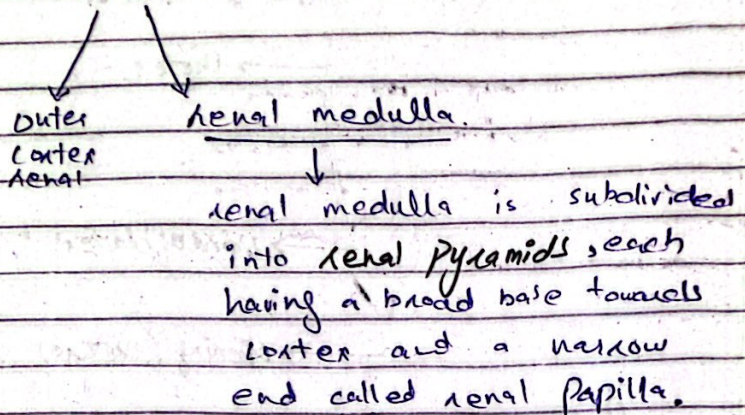 Outer
renal medulla.
Cortex
renal
renal medulla is subdivided
into renal Pyramids, each
having a broad base towards
cortex and a narrow
end called renal Papilla.